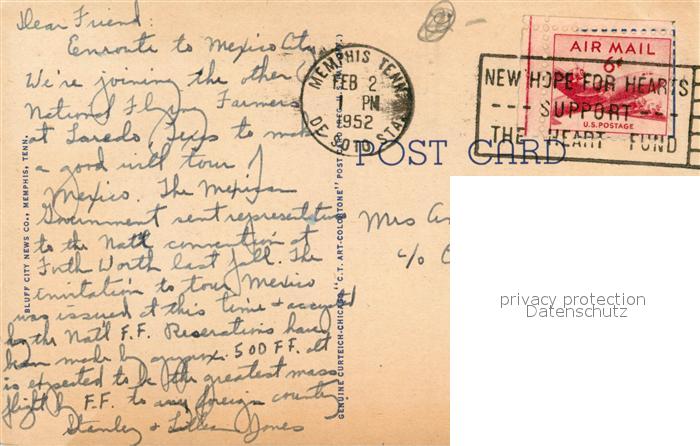 Dear Friend:
Enroute to Mexico City
We're joining the other
National Flying Farmers
at Laredo, Texas to make
a good will tour of
Mexico. The Mexican
Government sent representatives
to the Nat'l convention at
Forth Worth last fall. The
invitation to tour Mexico
was issued at this time & accepted
by the Nat'l F.F. Reserations have
been made by approx. 500 F.F. & it
is expected to be the greatest mass
flight by F.F. to any foreign country
Stanley & Lillian Jones
BLUFF CITY NEWS CO., MEMPHIS, TENN.
GENUINE CURTEICH-CHICAGO "C.T. ART-COLORTONE" POST CARD
MEMPHIS TENN.
FEB 2
1 PM
1952
DE SOTO STA.
AIR MAIL
6¢
U.S. POSTAGE
NEW HOPE FOR HEARTS
--- SUPPORT ---
THE HEART FUND
POST CARD
Mrs
c/o
privacy protection
Datenschutz